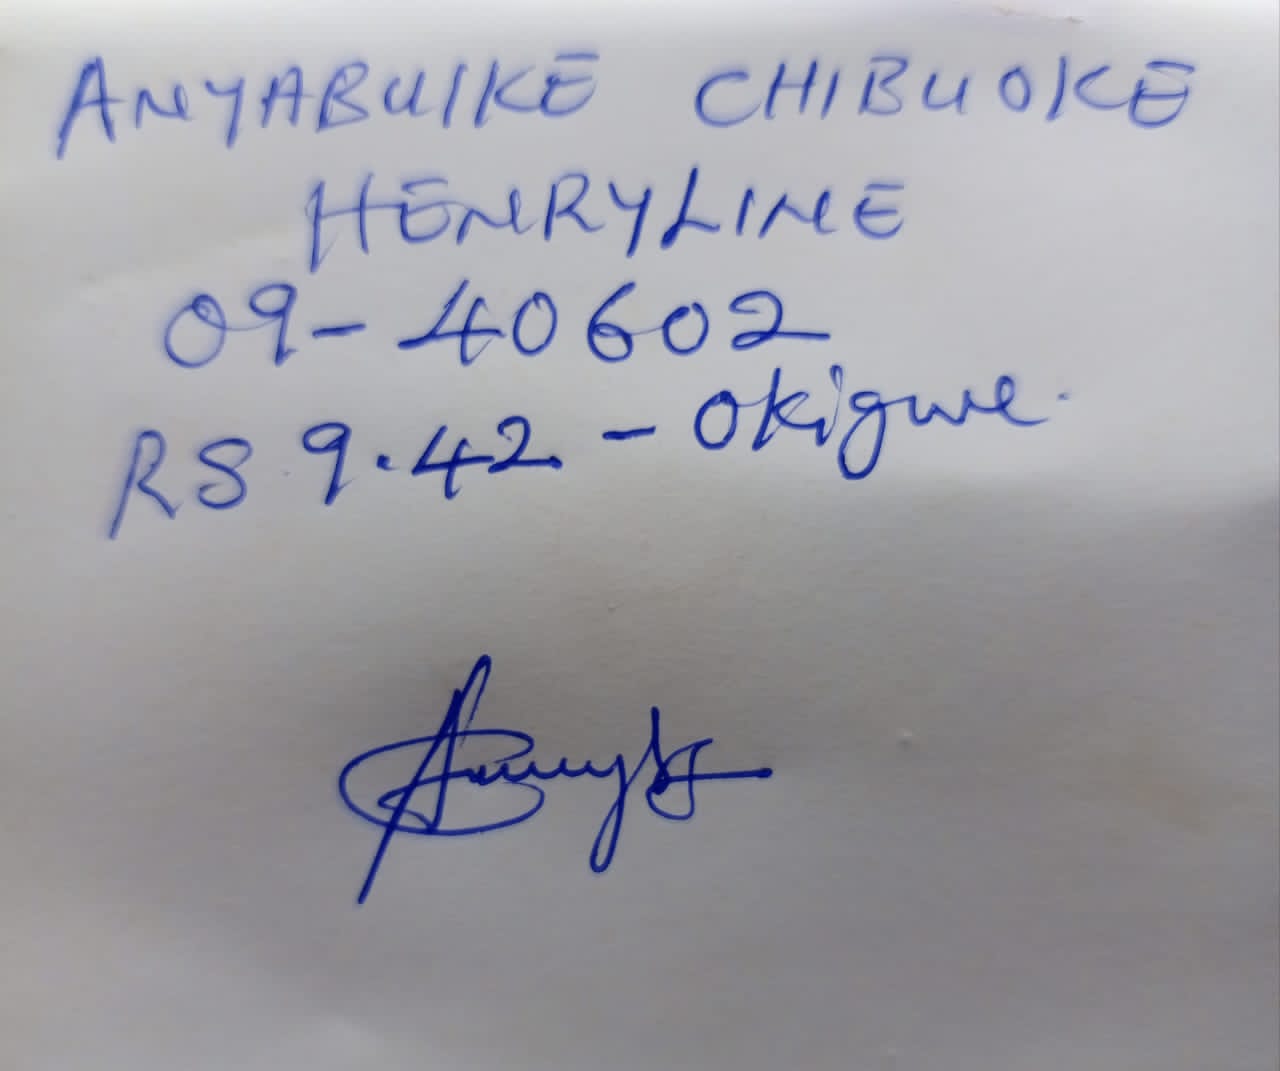 ANYABUIKE CHIBUOKE
HENRYLINE
09-40602
RS 9.42 - Okigwe.